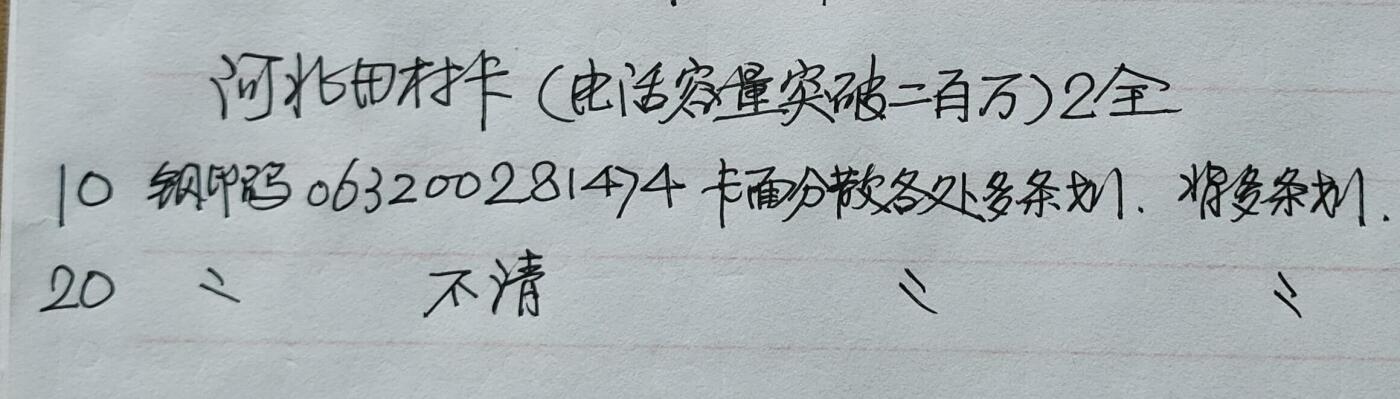 河北田村卡(电话容量突破二百万)2全
10 钢印码063200281474卡面分散各处多条划.背多条划.
20 〃 不清 〃 〃